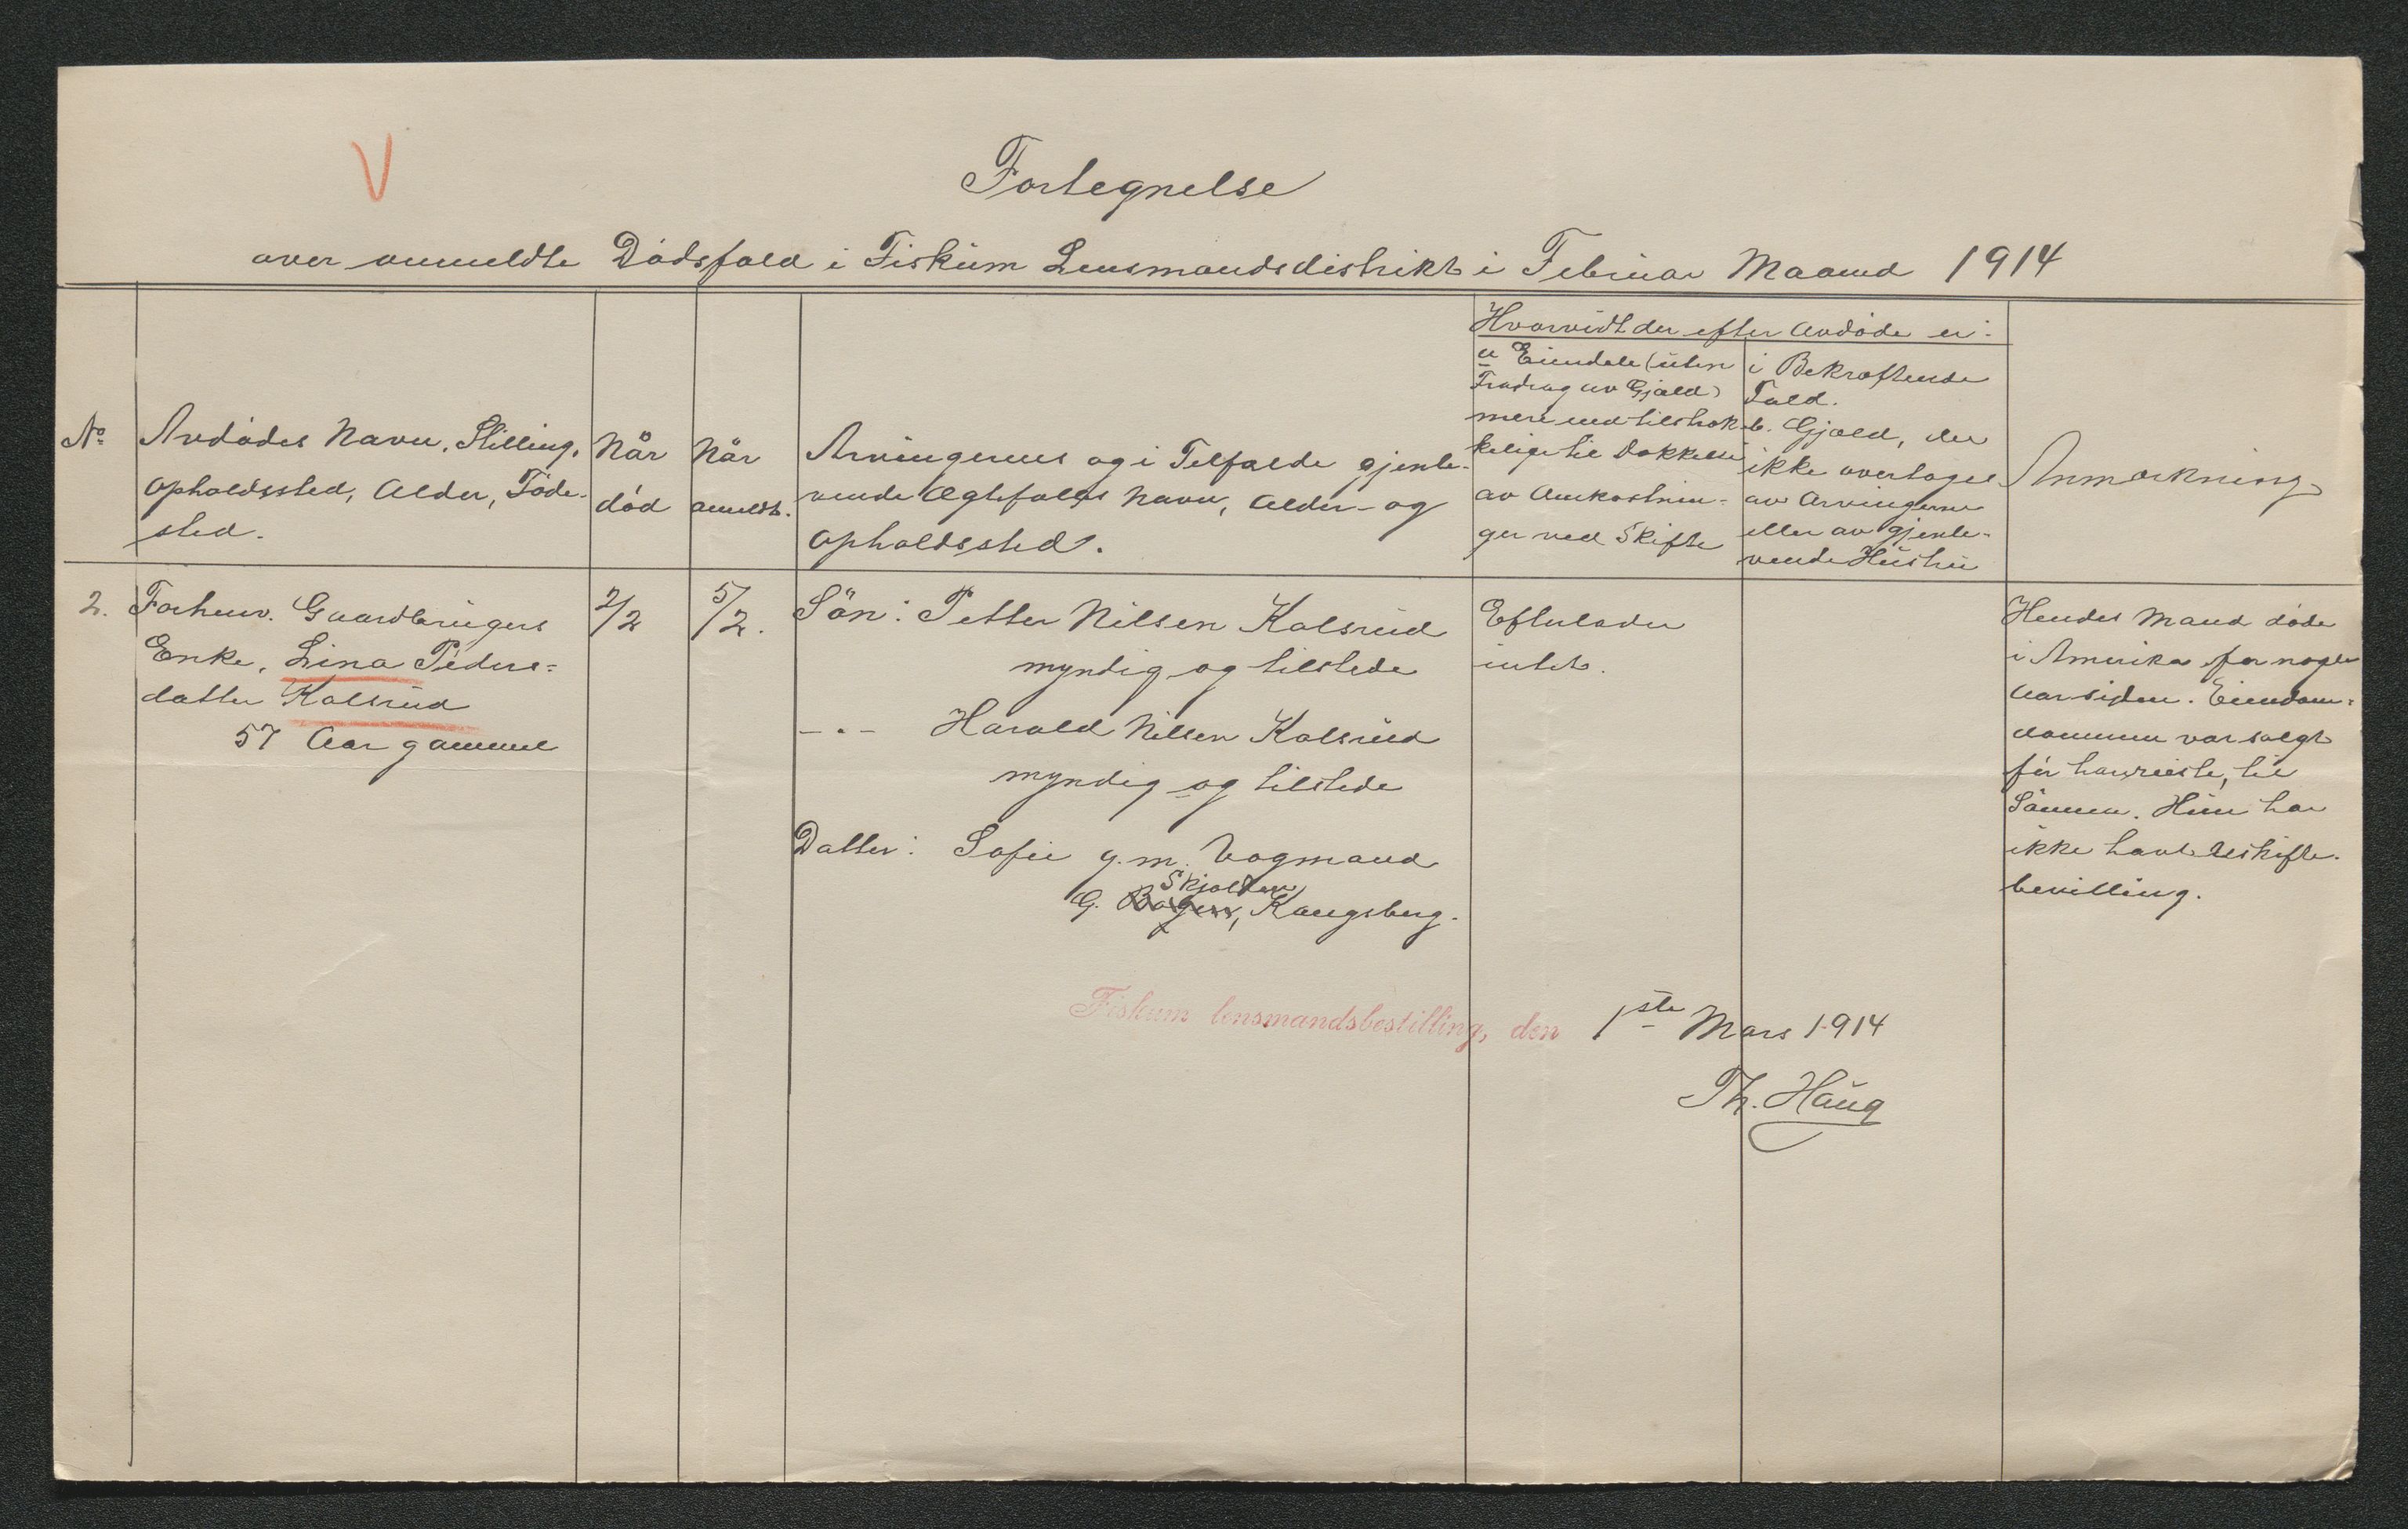 V
Fortegnelse
over anmeldte Dödsfald i Fiskum Lensmandsdistrikt i Februar Maaned 1914
No
Avdödes Navn, Stilling,
Opholdssted, Alder, Föde-
sted.
Når
död
Når
anmeldt.
Arvingernes og i Tilfælde gjenle-
vende Ægtefælles Navn, Alder og
Opholdssted.
Hvorvidt der efter Avdöde er:
a Eiendele (uten
Fradrag av Gjæld)
mere end tilstræk-
kelige til Dækkelse
av Omkostnin-
ger ved Skifte
i Bekræftende
Fald.
b. Gjæld, der
ikke overtages
av Arvingerne
eller av gjenle-
vende Hustru
Anmærkning
2.
Forhenv. Gaardbrugers
Enke, Lina Peders-
datter Kalsrud
57 Aar gammel
2/2
5/2.
Sön: Petter Nilsen Kalsrud
myndig og tilstede
-"- Harald Nilsen Kalsrud
myndig og tilstede
Datter: Sofie g. m. Vognmand
Skjalden
G. Kongsberg.
Efterlader
intet.
Hendes Mand döde
i Amerika for nogle
Aar siden. Eiendom-
dommen var solgt
för han reiste, til
Sönnen. Hun har
ikke havt Uskifte-
bevilling.
Fiskum lensmandsbestilling, den 1ste Mars 1914
Th. Haug